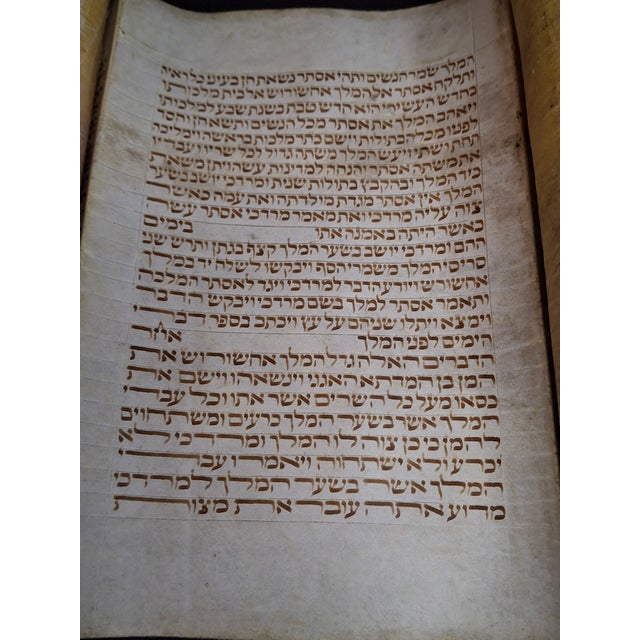 המלך שמר הנשים ותהי אסתר נשאת חן בעיני כל ראיה
ותלקח אסתר אל המלך אחשורוש אל בית מלכותו
בחדש העשירי הוא חדש טבת בשנת שבע למלכותו
ויאהב המלך את אסתר מכל הנשים ותשא חן וחסד
לפניו מכל הבתולות וישם כתר מלכות בראשה וימליכה
תחת ושתי ויעש המלך משתה גדול לכל שריו ועבדיו
את משתה אסתר והנחה למדינות עשה ויתן משאת
כיד המלך ובהקבץ בתולות שנית ומרדכי ישב בשער
המלך אין אסתר מגדת מולדתה ואת עמה כאשר
צוה עליה מרדכי ואת מאמר מרדכי אסתר עשה
כאשר היתה באמנה אתו בימים
ההם ומרדכי יושב בשער המלך קצף בגתן ותרש שני
סריסי המלך משמרי הסף ויבקשו לשלח יד במלך
אחשורוש ויודע הדבר למרדכי ויגד לאסתר המלכה
ותאמר אסתר למלך בשם מרדכי ויבקש הדבר
וימצא ויתלו שניהם על עץ ויכתב בספר דברי
הימים לפני המלך אחר
הדברים האלה גדל המלך אחשורוש את
המן בן המדתא האגגי וינשאהו וישם את
כסאו מעל כל השרים אשר אתו וכל עבדי
המלך אשר בשער המלך כרעים ומשתחוים
להמן כי כן צוה לו המלך ומרדכי לא
יכרע ולא ישתחוה ויאמרו עבדי
המלך אשר בשער המלך למרדכי
מדוע אתה עובר את מצות